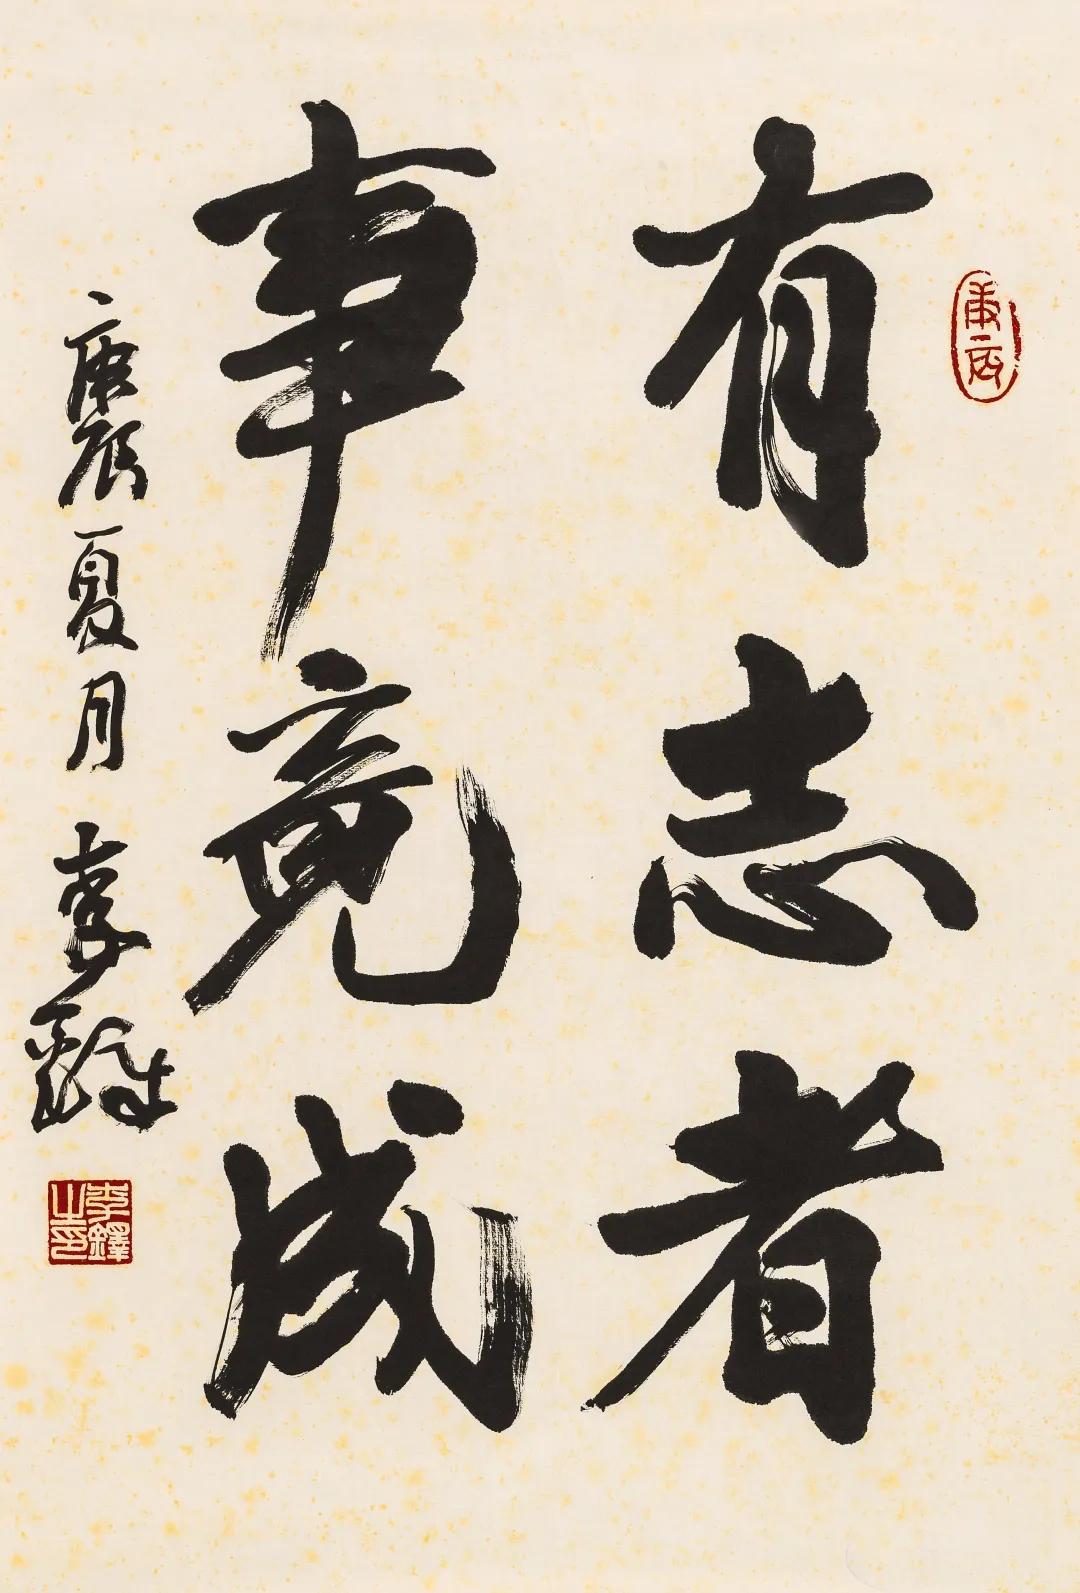 有志者
事竟成
庚辰夏月 李鐸
庚辰
李鐸之印